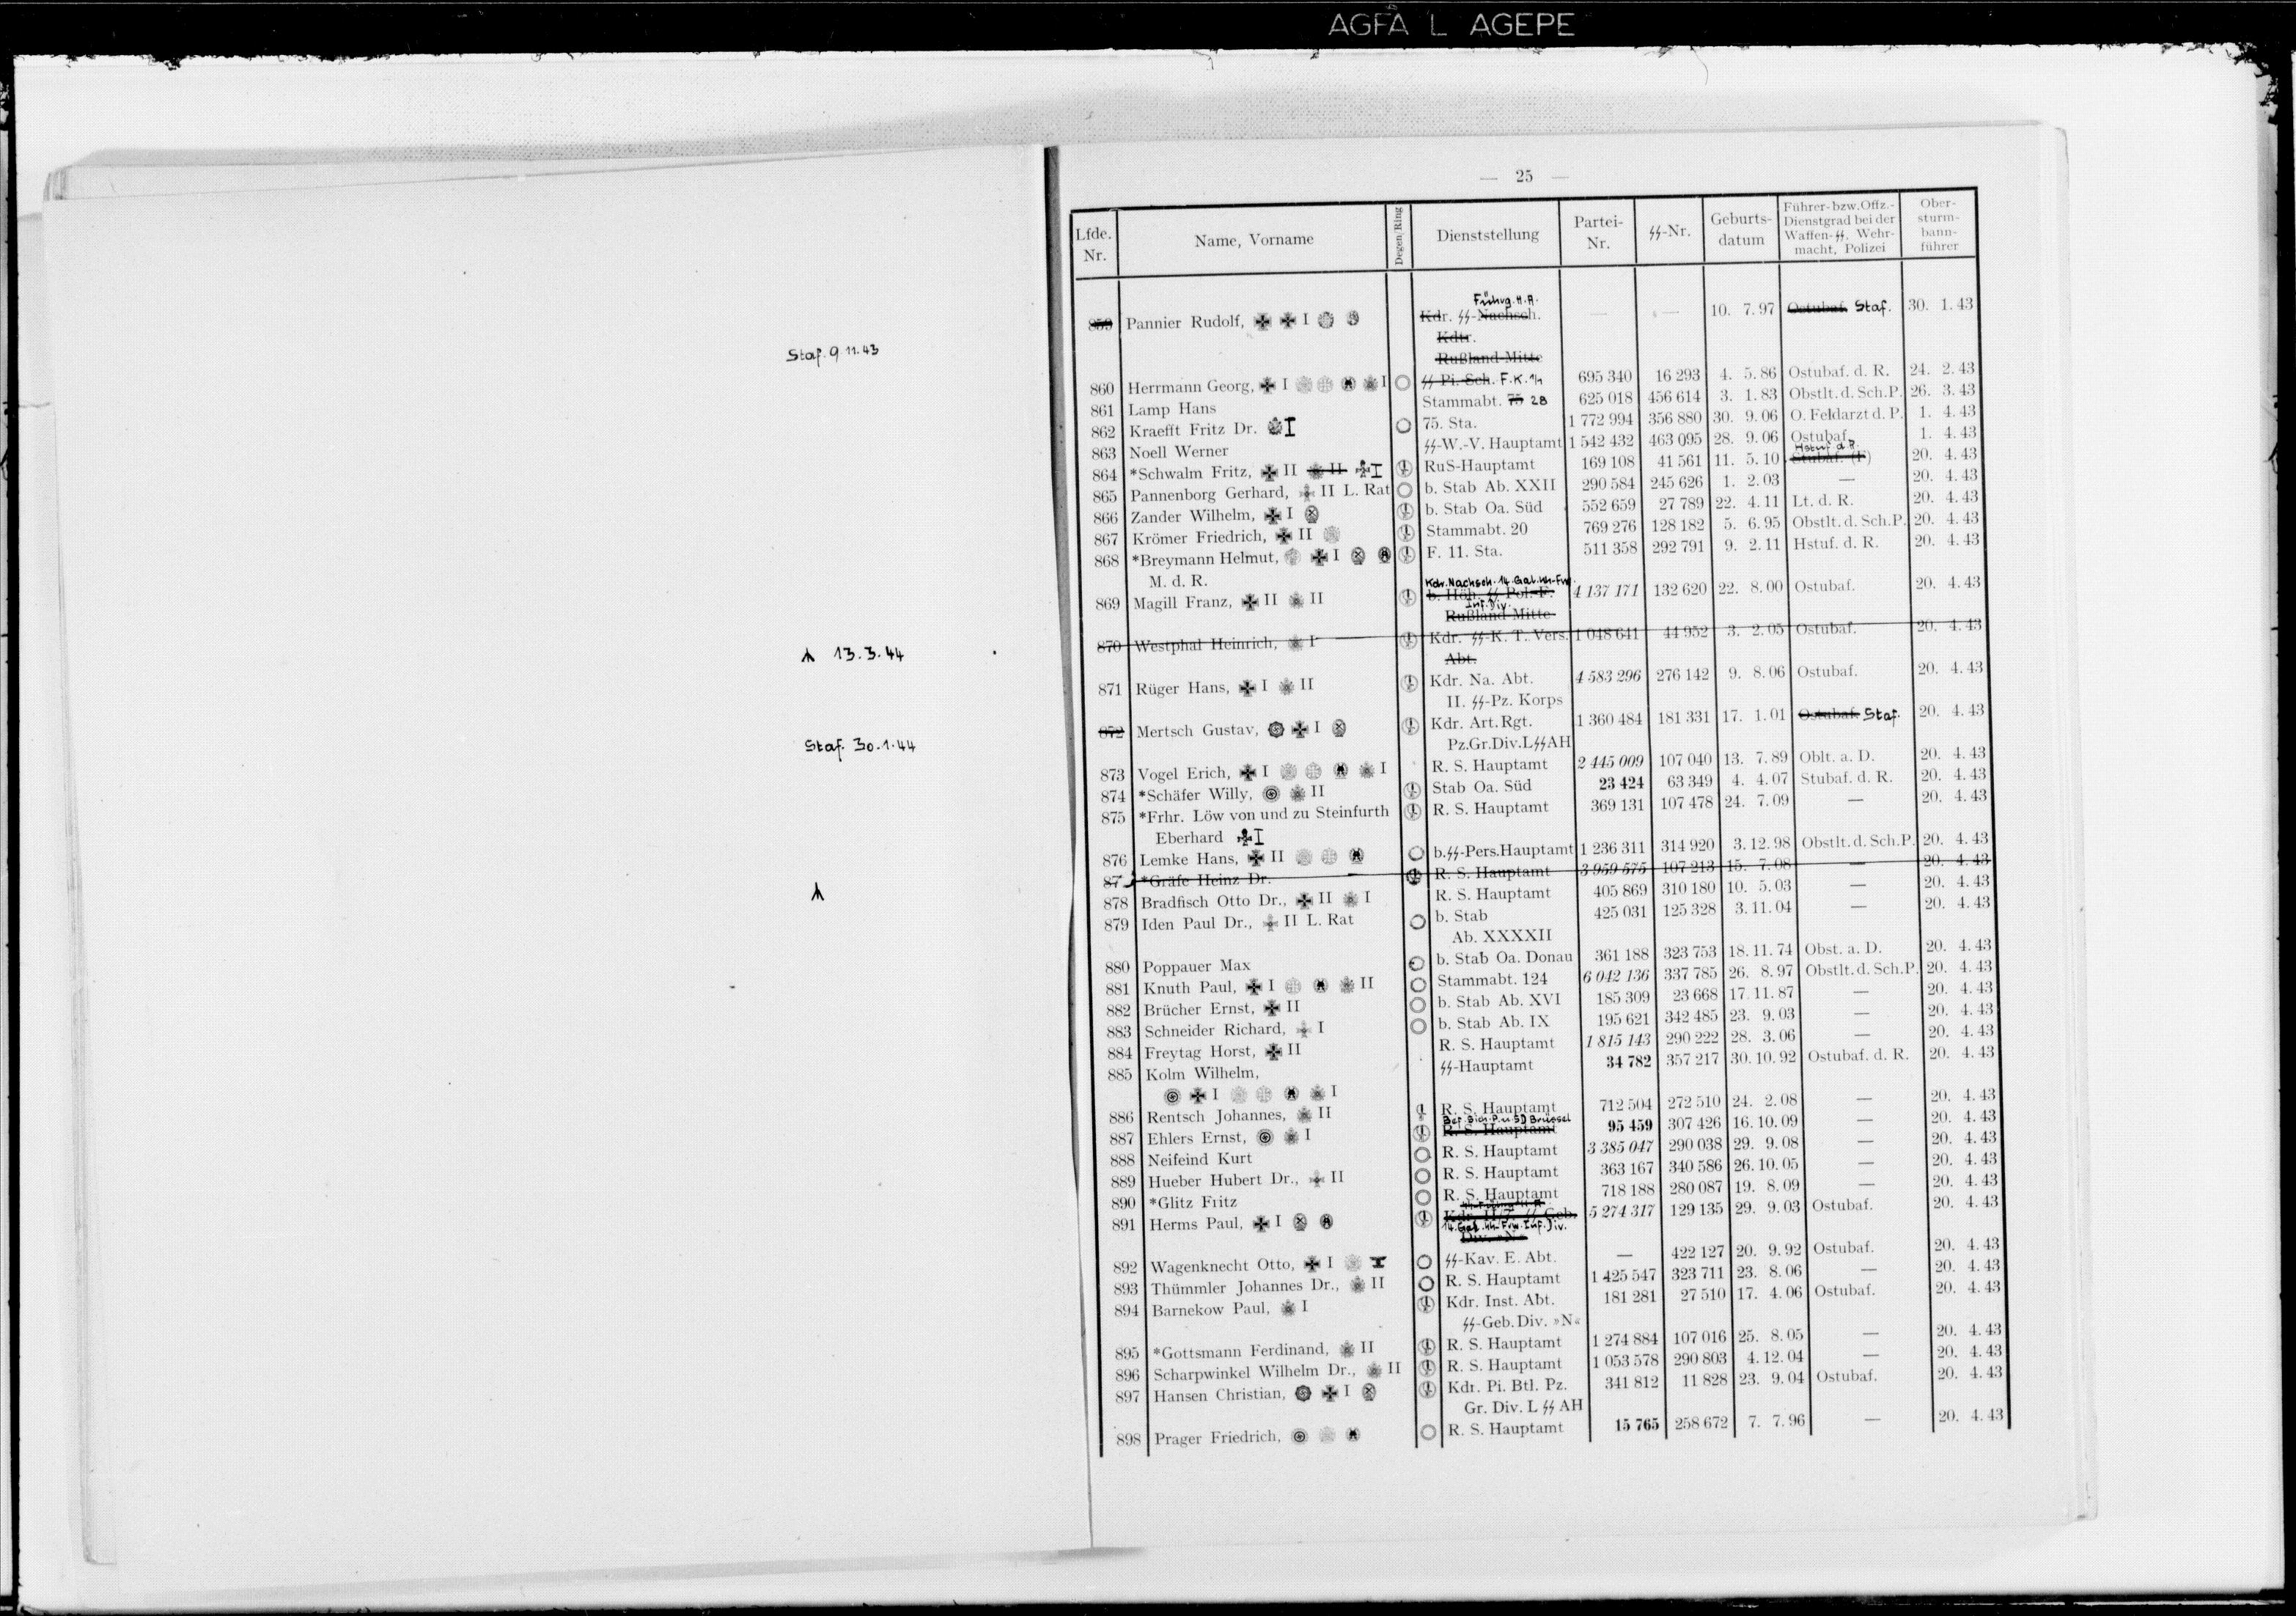 AGFA L AGEPE
Staf. 9.11.43
13.3.44
Staf. 30.1.44
— 25 —
Lfde. Nr. | Name, Vorname | Degen/Ring | Dienststellung | Partei-Nr. | ᛋᛋ-Nr. | Geburts-datum | Führer- bzw. Offz.-Dienstgrad bei der Waffen-ᛋᛋ, Wehr-macht, Polizei | Ober-sturm-bann-führer
Führg. H. A.
859 Pannier Rudolf, I Kdr. ᛋᛋ-Nachsch. — — 10. 7. 97 Ostubaf. Staf. 30. 1. 43
Kdtr.
Rußland-Mitte
860 Herrmann Georg, I I ᛋᛋ-Pi. Sch. F.K. 695 340 16 293 4. 5. 86 Ostubaf. d. R. 24. 2. 43
861 Lamp Hans Stammabt. 75 28 625 018 456 614 3. 1. 83 Obstlt. d. Sch.P. 26. 3. 43
862 Kraefft Fritz Dr. I 75. Sta. 1 772 994 356 880 30. 9. 06 O. Feldarzt d. P. 1. 4. 43
863 Noell Werner ᛋᛋ-W.-V. Hauptamt 1 542 432 463 095 28. 9. 06 Ostubaf. 1. 4. 43
Hstuf. d. R.
864 *Schwalm Fritz, II II I RuS-Hauptamt 169 108 41 561 11. 5. 10 Stubaf. (F) 20. 4. 43
865 Pannenborg Gerhard, II L. Rat b. Stab Ab. XXII 290 584 245 626 1. 2. 03 — 20. 4. 43
866 Zander Wilhelm, I b. Stab Oa. Süd 552 659 27 789 22. 4. 11 Lt. d. R. 20. 4. 43
867 Krömer Friedrich, II Stammabt. 20 769 276 128 182 5. 6. 95 Obstlt. d. Sch.P. 20. 4. 43
868 *Breymann Helmut, I F. 11. Sta. 511 358 292 791 9. 2. 11 Hstuf. d. R. 20. 4. 43
M. d. R.
Kdr. Nachsch. 14. Gal. ᛋᛋ-Frw.
869 Magill Franz, II II b. Höh. ᛋᛋ-Pol.-F. 4 137 171 132 620 22. 8. 00 Ostubaf. 20. 4. 43
Inf. Div.
Rußland-Mitte
870 Westphal Heinrich, I Kdr. ᛋᛋ-K. T. Vers. 1 048 641 44 952 3. 2. 05 Ostubaf. 20. 4. 43
Abt.
871 Rüger Hans, I II Kdr. Na. Abt. 4 583 296 276 142 9. 8. 06 Ostubaf. 20. 4. 43
II. ᛋᛋ-Pz. Korps
872 Mertsch Gustav, I Kdr. Art. Rgt. 1 360 484 181 331 17. 1. 01 Ostubaf. Staf. 20. 4. 43
Pz.Gr.Div.LᛋᛋAH
873 Vogel Erich, I I R. S. Hauptamt 2 445 009 107 040 13. 7. 89 Oblt. a. D. 20. 4. 43
874 *Schäfer Willy, II Stab Oa. Süd 23 424 63 349 4. 4. 07 Stubaf. d. R. 20. 4. 43
875 *Frhr. Löw von und zu Steinfurth R. S. Hauptamt 369 131 107 478 24. 7. 09 — 20. 4. 43
Eberhard I
876 Lemke Hans, II b.ᛋᛋ-Pers.Hauptamt 1 236 311 314 920 3. 12. 98 Obstlt. d. Sch.P. 20. 4. 43
87 *Gräfe Heinz Dr. R. S. Hauptamt 3 959 575 107 213 15. 7. 08 — 20. 4. 43
878 Bradfisch Otto Dr., II I R. S. Hauptamt 405 869 310 180 10. 5. 03 — 20. 4. 43
879 Iden Paul Dr., II L. Rat b. Stab 425 031 125 328 3. 11. 04 — 20. 4. 43
Ab. XXXXII
880 Poppauer Max b. Stab Oa. Donau 361 188 323 753 18. 11. 74 Obst. a. D. 20. 4. 43
881 Knuth Paul, I II Stammabt. 124 6 042 136 337 785 26. 8. 97 Obstlt. d. Sch.P. 20. 4. 43
882 Brücher Ernst, II b. Stab Ab. XVI 185 309 23 668 17. 11. 87 — 20. 4. 43
883 Schneider Richard, I b. Stab Ab. IX 195 621 342 485 23. 9. 03 — 20. 4. 43
884 Freytag Horst, II R. S. Hauptamt 1 815 143 290 222 28. 3. 06 — 20. 4. 43
885 Kolm Wilhelm, ᛋᛋ-Hauptamt 34 782 357 217 30. 10. 92 Ostubaf. d. R. 20. 4. 43
I I
886 Rentsch Johannes, II R. S. Hauptamt 712 504 272 510 24. 2. 08 — 20. 4. 43
Bef. Sich. P. u. SD Brüssel
887 Ehlers Ernst, I R. S. Hauptamt 95 459 307 426 16. 10. 09 — 20. 4. 43
888 Neifeind Kurt R. S. Hauptamt 3 385 047 290 038 29. 9. 08 — 20. 4. 43
889 Hueber Hubert Dr., II R. S. Hauptamt 363 167 340 586 26. 10. 05 — 20. 4. 43
890 *Glitz Fritz R. S. Hauptamt 718 188 280 087 19. 8. 09 — 20. 4. 43
891 Herms Paul, I Kdr. ᛋᛋ-Geb. 5 274 317 129 135 29. 9. 03 Ostubaf. 20. 4. 43
14. Gal. ᛋᛋ-Frw. Inf. Div.
Div. »N«
892 Wagenknecht Otto, I I ᛋᛋ-Kav. E. Abt. — 422 127 20. 9. 92 Ostubaf. 20. 4. 43
893 Thümmler Johannes Dr., II R. S. Hauptamt 1 425 547 323 711 23. 8. 06 — 20. 4. 43
894 Barnekow Paul, I Kdr. Inst. Abt. 181 281 27 510 17. 4. 06 Ostubaf. 20. 4. 43
ᛋᛋ-Geb. Div. »N«
895 *Gottsmann Ferdinand, II R. S. Hauptamt 1 274 884 107 016 25. 8. 05 — 20. 4. 43
896 Scharpwinkel Wilhelm Dr., II R. S. Hauptamt 1 053 578 290 803 4. 12. 04 — 20. 4. 43
897 Hansen Christian, I Kdr. Pi. Btl. Pz. 341 812 11 828 23. 9. 04 Ostubaf. 20. 4. 43
Gr. Div. L ᛋᛋ AH
898 Prager Friedrich, R. S. Hauptamt 15 765 258 672 7. 7. 96 — 20. 4. 43